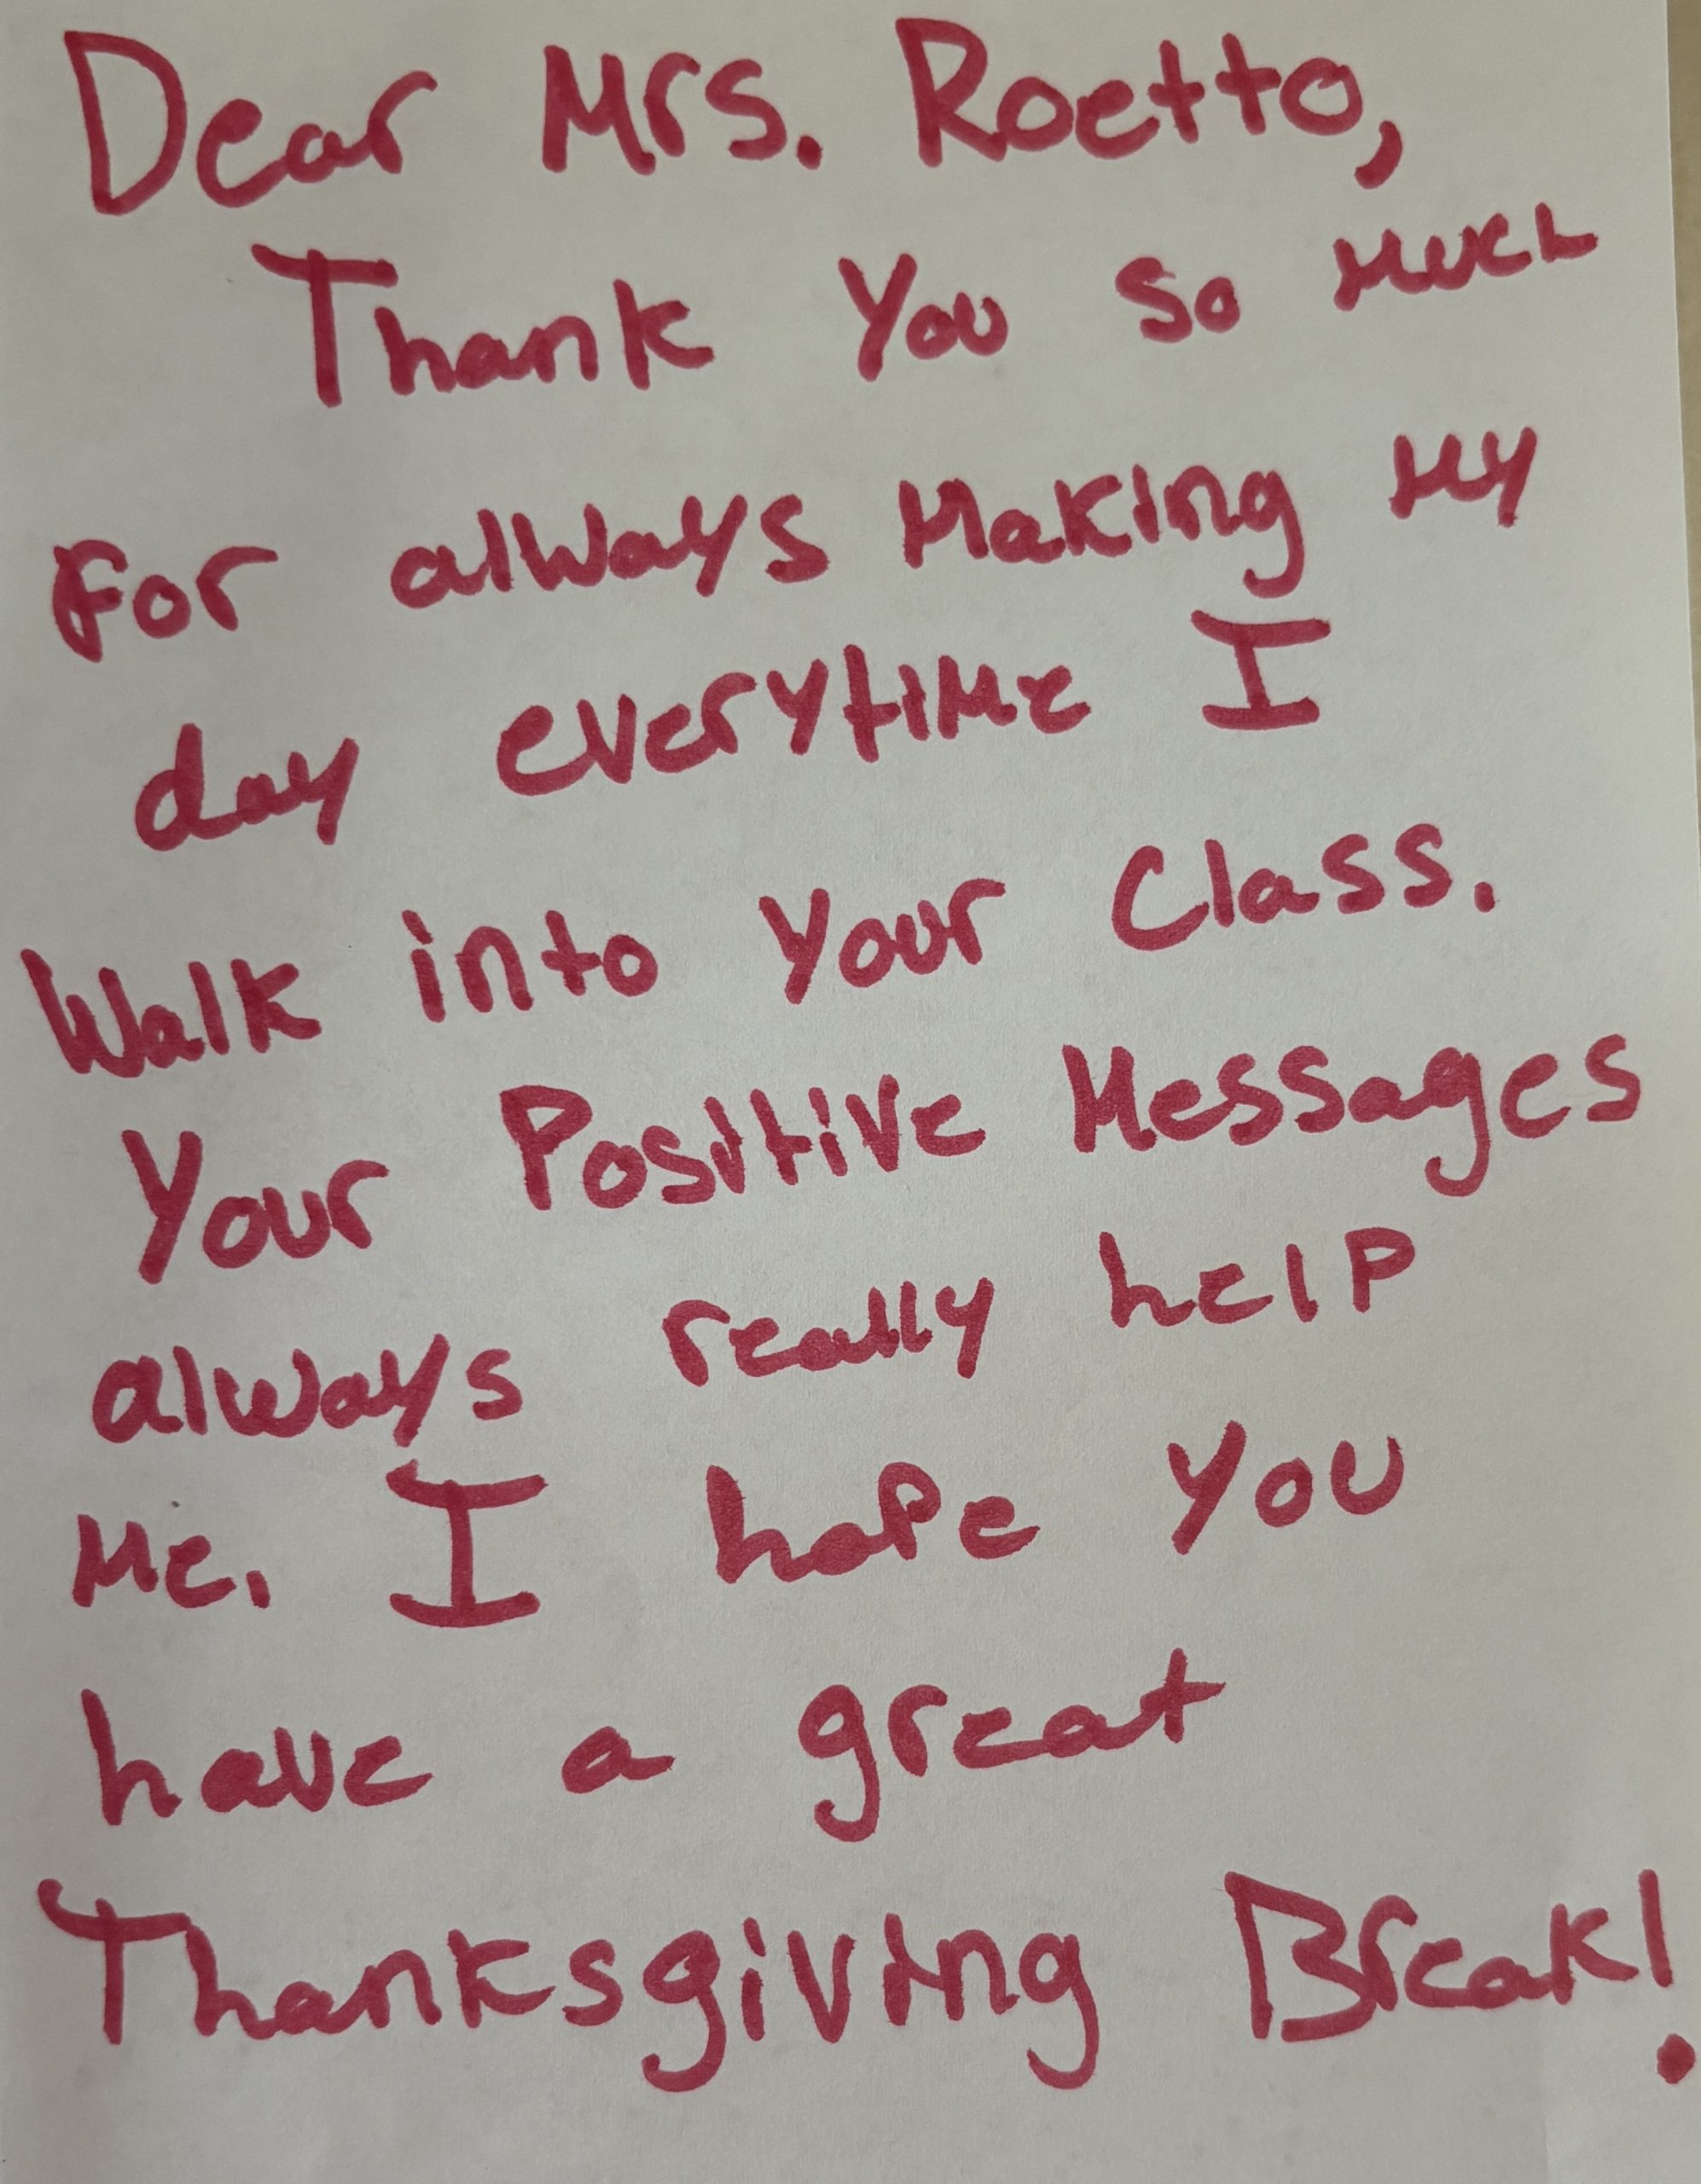 Dear Mrs. Roetto,
Thank You so much
For always Making My
day everytime I
Walk into Your Class.
Your Positive Messages
always really help
Me. I hope You
have a great
Thanksgiving Break!